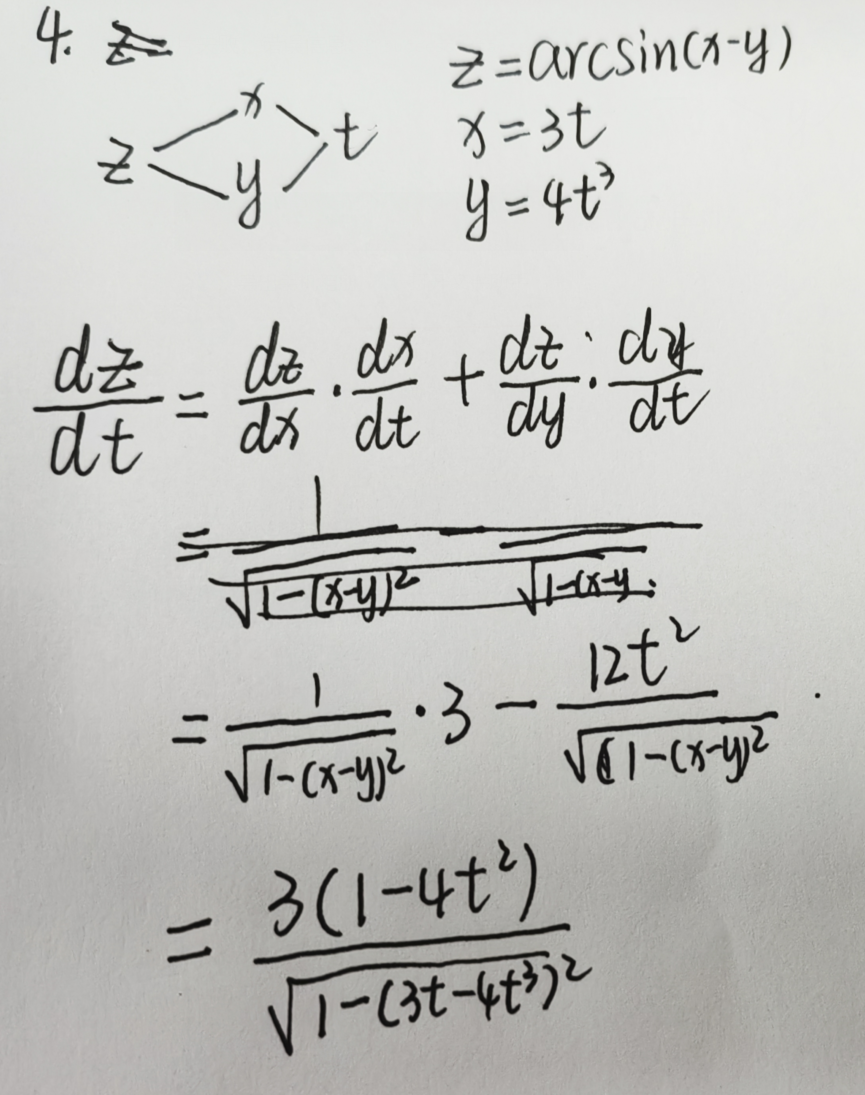 4. z=
z = arcsin(x-y)
x
z t
x = 3t
y
y = 4t³
dz/dt = dz/dx · dx/dt + dz/dy · dy/dt
= 1/√(1-(x-y)²) √(1-(x-y
= 1/√(1-(x-y)²) · 3 - 12t²/√(1-(x-y)²)
= 3(1-4t²)/√(1-(3t-4t³)²)